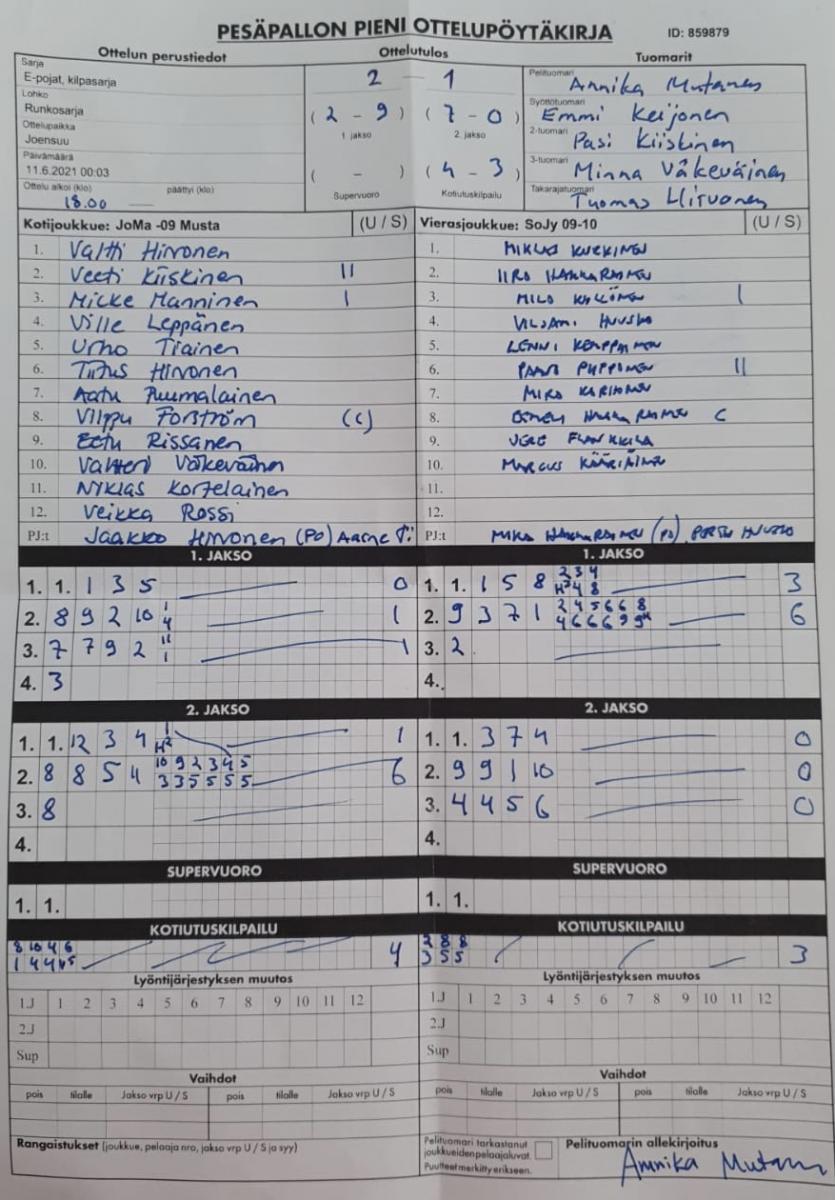 PESÄPALLON PIENI OTTELUPÖYTÄKIRJA
ID: 859879
Ottelun perustiedot
Ottelutulos
Tuomarit
Sarja
E-pojat, kilpasarja
Lohko
Runkosarja
Ottelupaikka
Joensuu
Päivämäärä
11.6.2021 00:03
Ottelu alkoi (klo) päättyi (klo)
18.00
2 - 1
(2 - 9) (7 - 0)
1. jakso 2. jakso
( - ) (4 - 3)
Supervuoro Kotiutuskilpailu
Pelituomari Annika Mutanen
Syöttötuomari Emmi Keijonen
2-tuomari Pasi Kiiskinen
3-tuomari Minna Väkeväinen
Takarajatuomari Tuomas
Kotijoukkue: JoMa -09 Musta (U / S)
1. Valtti Hirvonen
2. Veeti Kiiskinen II
3. Micke Manninen I
4. Ville Leppänen
5. Urho Tiainen
6. Titus Hirvonen
7. Aatu Ruumalainen
8. Vilppu Forström (C)
9. Eetu Rissanen
10. Valtteri Väkeväinen
11. Nyklas Kortelainen
12. Veikka Rossi
PJ:t Jaakko Hirvonen (PO) Aarne
Vierasjoukkue: SoJy 09-10 (U / S)
1.
2. IIRO
3. MILO I
4. VILJAMI
5. LENNI KEMPPAINEN
6. II
7. MIRO
8. C
9. VERE
10. MARCUS KÄÄRIÄINEN
11.
12.
PJ:t MIKA (PO)
1. JAKSO
1. 1. 1 3 5 0
2. 8 9 2 10 1 4 1
3. 7 7 9 2 11 1 1
4. 3
1. JAKSO
1. 1. 1 5 8 2 3 4 3
2. 9 3 7 1 2 4 5 6 6 8 6
3. 2
4.
2. JAKSO
1. 1. 12 3 4 1
2. 8 8 5 4 10 9 2 3 4 5 6
3 3 5 5 5 5
3. 8
4.
2. JAKSO
1. 1. 3 7 4 0
2. 9 9 1 10 0
3. 4 4 5 6 0
4.
SUPERVUORO
1. 1.
SUPERVUORO
1. 1.
KOTIUTUSKILPAILU
8 10 4 6 4
KOTIUTUSKILPAILU
2 8 8 3
3 5 5
Lyöntijärjestyksen muutos
1.J 1 2 3 4 5 6 7 8 9 10 11 12
2.J
Sup
Lyöntijärjestyksen muutos
1.J 1 2 3 4 5 6 7 8 9 10 11 12
2.J
Sup
Vaihdot
pois tilalle Jakso vrp U / S pois tilalle Jakso vrp U / S
Vaihdot
pois tilalle Jakso vrp U / S pois tilalle Jakso vrp U / S
Rangaistukset (joukkue, pelaaja nro, jakso vrp U / S ja syy)
Pelituomari tarkastanut
joukkueiden pelaajaluvat.
Puutteet merkitty erikseen.
Pelituomarin allekirjoitus
Annika Mutanen